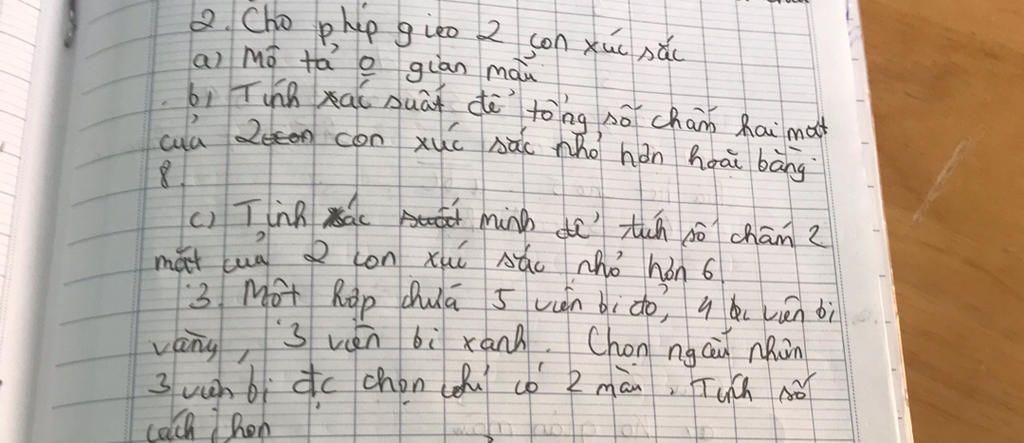 2. Cho phép gieo 2 con xúc sắc
a) Mô tả o gian mẫu
b) Tính xác suất để tổng số chấm hai mặt
của 2 con xúc sắc nhỏ hơn hoặc bằng
8.
c) Tính xác minh để tích số chấm 2
mặt của 2 con xúc sắc nhỏ hơn 6
3. Một hộp chứa 5 viên bi đỏ, 4 viên bi
vàng, 3 viên bi xanh. Chọn ngẫu nhiên
3 viên bi đc chọn chỉ có 2 màu. Tính số
cách chọn